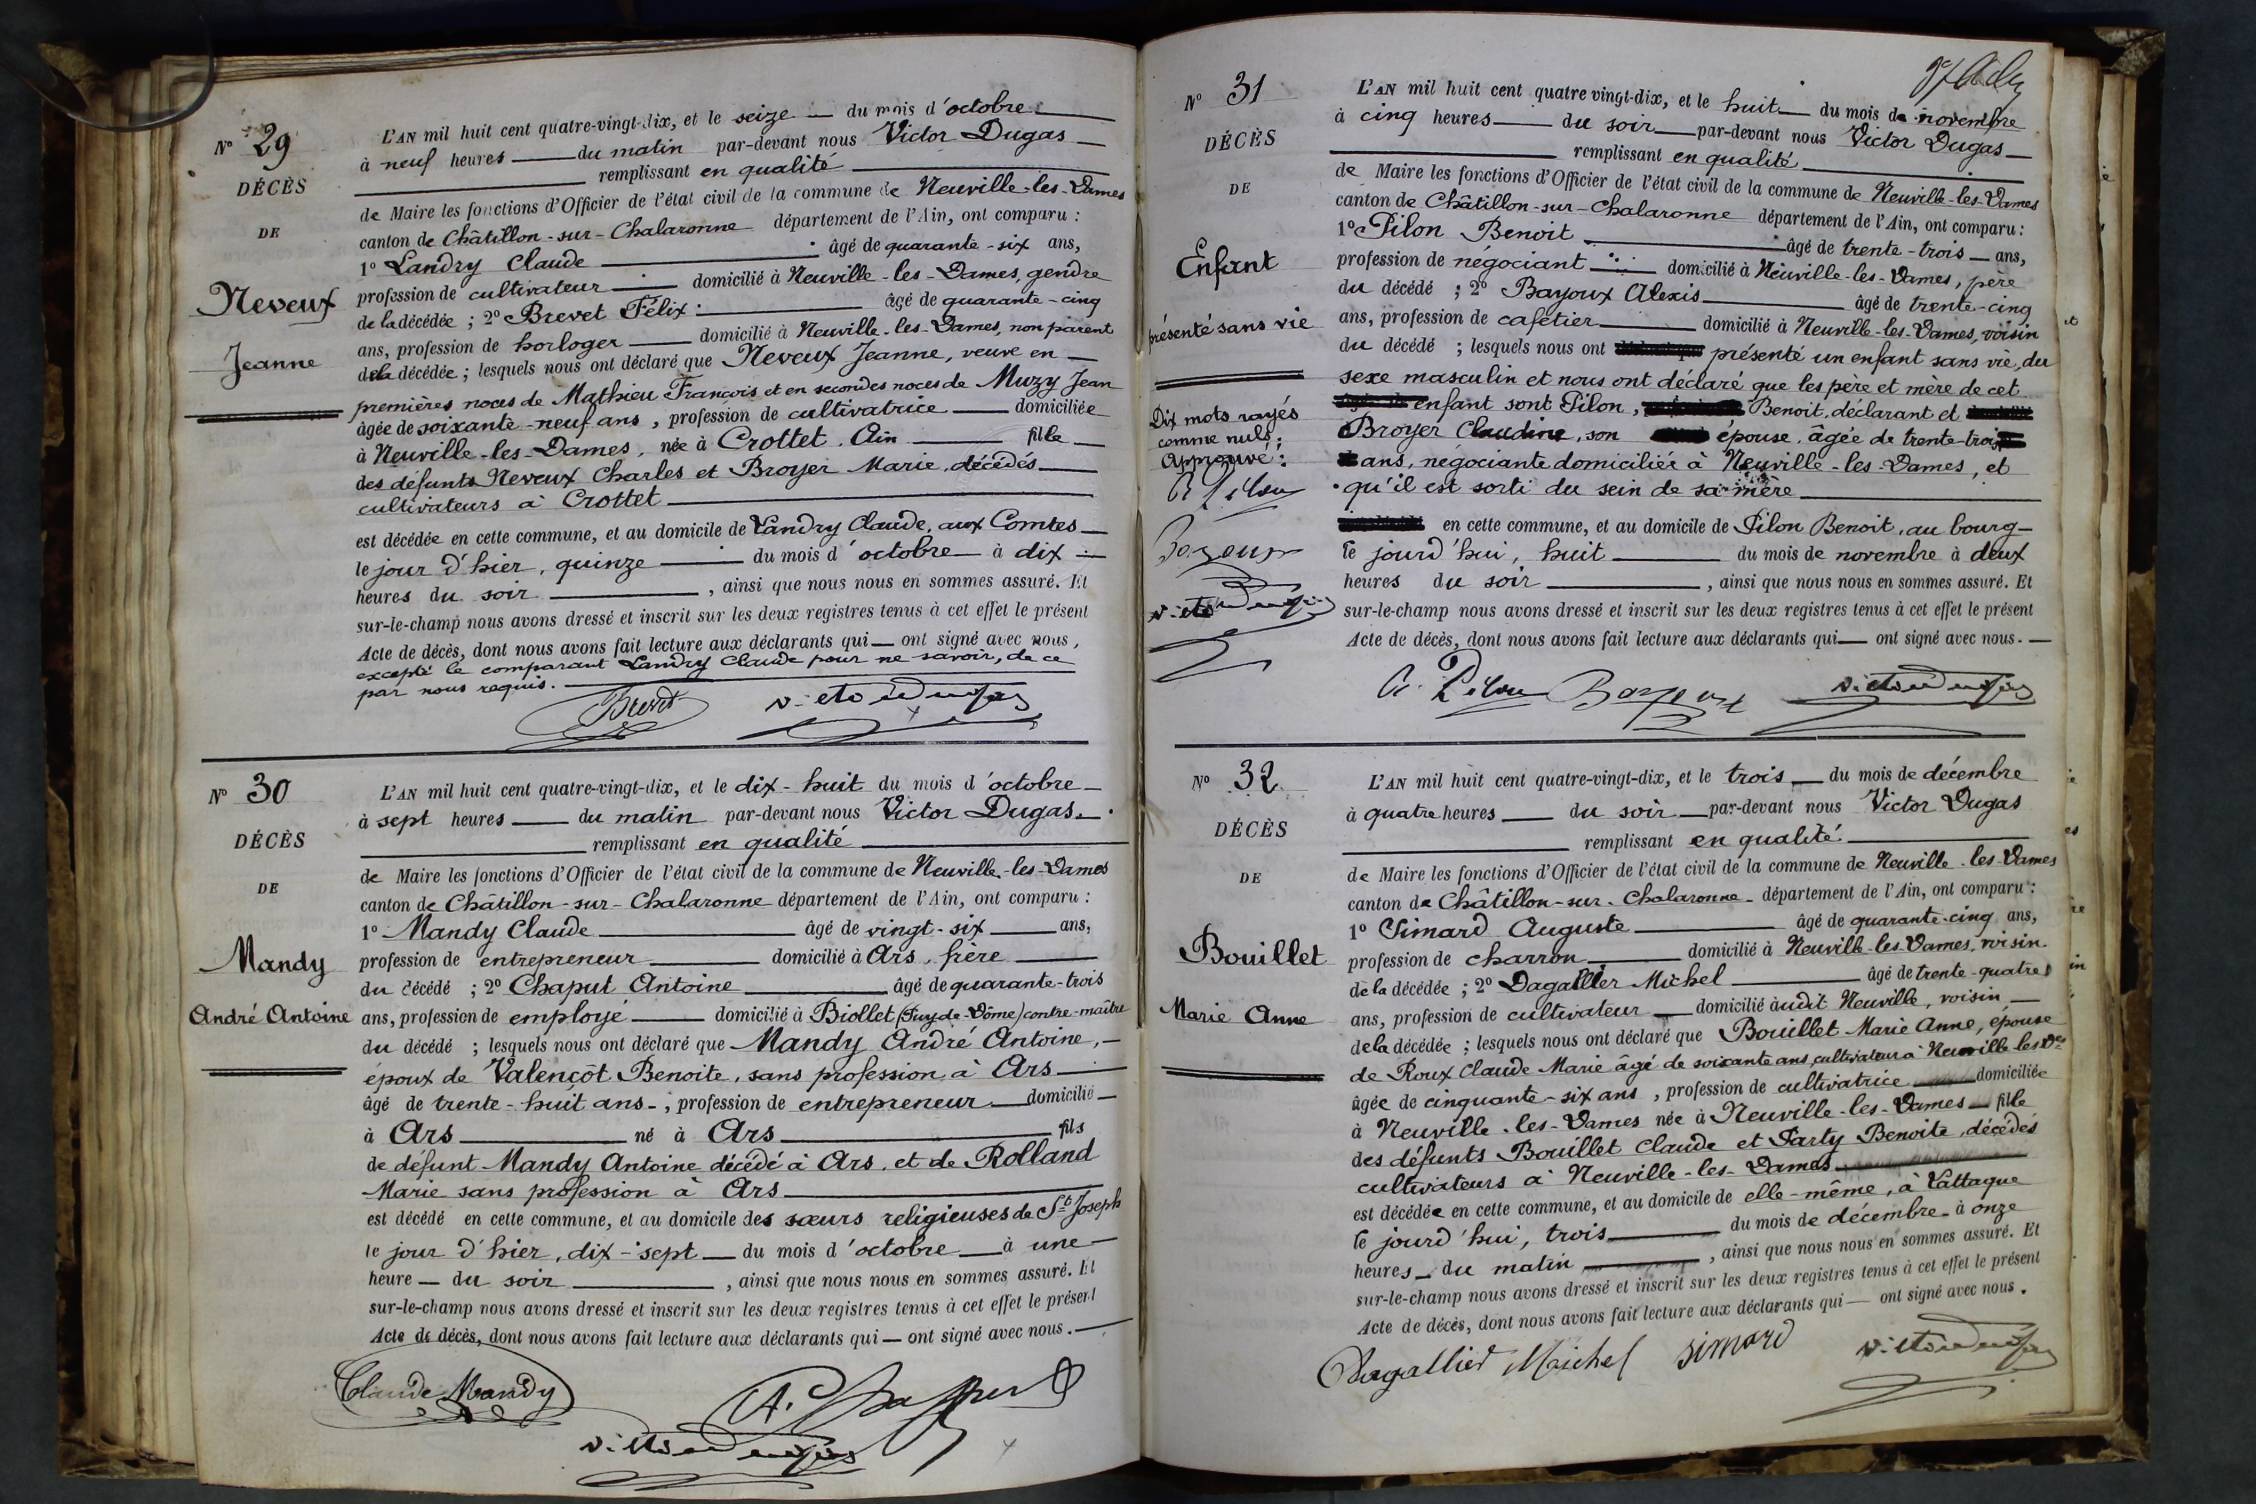 N° 29
DÉCÈS
DE
Neveux
Jeanne
L'AN mil huit cent quatre-vingt-dix, et le seize du mois d'octobre
à neuf heures du matin par-devant nous Victor Dugas
remplissant en qualité
de Maire les fonctions d'Officier de l'état civil de la commune de Neuville-les-Dames
canton de Châtillon-sur-Chalaronne département de l'Ain, ont comparu :
1° Landry Claude âgé de quarante-six ans,
profession de cultivateur domicilié à Neuville-les-Dames, gendre
de la décédée ; 2° Brevet Félix âgé de quarante-cinq
ans, profession de horloger domicilié à Neuville-les-Dames, non parent
de la décédée ; lesquels nous ont déclaré que Neveux Jeanne, veuve en
premières noces de Mathieu François et en secondes noces de Muzy Jean
âgée de soixante-neuf ans, profession de cultivatrice domiciliée
à Neuville-les-Dames, née à Crottet, Ain fille
des défunts Neveux Charles et Broyer Marie, décédés
cultivateurs à Crottet
est décédée en cette commune, et au domicile de Landry Claude, aux Comtes
le jour d'hier, quinze du mois d'octobre à dix
heures du soir, ainsi que nous nous en sommes assuré. Et
sur-le-champ nous avons dressé et inscrit sur les deux registres tenus à cet effet le présent
Acte de décès, dont nous avons fait lecture aux déclarants qui ont signé avec nous,
excepté le comparant Landry Claude pour ne savoir, de ce
par nous requis.
Brevet Victor Dugas
N° 30
DÉCÈS
DE
Mandy
André Antoine
L'AN mil huit cent quatre-vingt-dix, et le dix-huit du mois d'octobre
à sept heures du matin par-devant nous Victor Dugas.
remplissant en qualité
de Maire les fonctions d'Officier de l'état civil de la commune de Neuville-les-Dames
canton de Châtillon-sur-Chalaronne département de l'Ain, ont comparu :
1° Mandy Claude âgé de vingt-six ans,
profession de entrepreneur domicilié à Ars, frère
du décédé ; 2° Chaput Antoine âgé de quarante-trois
ans, profession de employé domicilié à Biollet (Puy-de-Dôme) contre-maître
du décédé ; lesquels nous ont déclaré que Mandy André Antoine,
époux de Valençôt Benoite, sans profession à Ars
âgé de trente-huit ans, profession de entrepreneur domicilié
à Ars né à Ars fils
de défunt Mandy Antoine décédé à Ars, et de Rolland
Marie sans profession à Ars
est décédé en cette commune, et au domicile des sœurs religieuses de St Joseph
le jour d'hier, dix-sept du mois d'octobre à une
heure du soir, ainsi que nous nous en sommes assuré. Et
sur-le-champ nous avons dressé et inscrit sur les deux registres tenus à cet effet le présent
Acte de décès, dont nous avons fait lecture aux déclarants qui ont signé avec nous.
Claude Mandy A. Chaput
Victor Dugas
N° 31
DÉCÈS
DE
Enfant
présenté sans vie
Dix mots rayés
comme nuls :
Approuvé :
B Pilon
Bayoux
Victor Dugas
L'AN mil huit cent quatre vingt-dix, et le huit du mois de novembre
à cinq heures du soir par-devant nous Victor Dugas
remplissant en qualité
de Maire les fonctions d'Officier de l'état civil de la commune de Neuville-les-Dames
canton de Châtillon-sur-Chalaronne département de l'Ain, ont comparu :
1° Pilon Benoit âgé de trente-trois ans,
profession de négociant domicilié à Neuville-les-Dames, père
du décédé ; 2° Bayoux Alexis âgé de trente-cinq
ans, profession de cafetier domicilié à Neuville-les-Dames, voisin
du décédé ; lesquels nous ont présenté un enfant sans vie, du
sexe masculin et nous ont déclaré que les père et mère de cet
enfant sont Pilon, Benoit, déclarant et
Broyer Claudine, son épouse, âgée de trente-trois
ans, négociante domiciliée à Neuville-les-Dames, et
qu'il est sorti du sein de sa mère
en cette commune, et au domicile de Pilon Benoit, au bourg
le jourd'hui, huit du mois de novembre à deux
heures du soir, ainsi que nous nous en sommes assuré. Et
sur-le-champ nous avons dressé et inscrit sur les deux registres tenus à cet effet le présent
Acte de décès, dont nous avons fait lecture aux déclarants qui ont signé avec nous.
B. Pilon Bayoux Victor Dugas
N° 32
DÉCÈS
DE
Bouillet
Marie Anne
L'AN mil huit cent quatre-vingt-dix, et le trois du mois de décembre
à quatre heures du soir par-devant nous Victor Dugas
remplissant en qualité
de Maire les fonctions d'Officier de l'état civil de la commune de Neuville-les-Dames
canton de Châtillon-sur-Chalaronne département de l'Ain, ont comparu :
1° Simard Auguste âgé de quarante-cinq ans,
profession de charron domicilié à Neuville-les-Dames, voisin
de la décédée ; 2° Dagallier Michel âgé de trente-quatre
ans, profession de cultivateur domicilié àudit Neuville, voisin
de la décédée ; lesquels nous ont déclaré que Bouillet Marie Anne, épouse
de Roux Claude Marie âgé de soixante ans, cultivateur à Neuville-les-Des
âgée de cinquante-six ans, profession de cultivatrice domiciliée
à Neuville-les-Dames née à Neuville-les-Dames fille
des défunts Bouillet Claude et Party Benoite, décédés
cultivateurs à Neuville-les-Dames
est décédée en cette commune, et au domicile de elle-même, à Lattaque
le jourd'hui, trois du mois de décembre à onze
heures du matin, ainsi que nous nous en sommes assuré. Et
sur-le-champ nous avons dressé et inscrit sur les deux registres tenus à cet effet le présent
Acte de décès, dont nous avons fait lecture aux déclarants qui ont signé avec nous.
Dagallier Michel Simard Victor Dugas